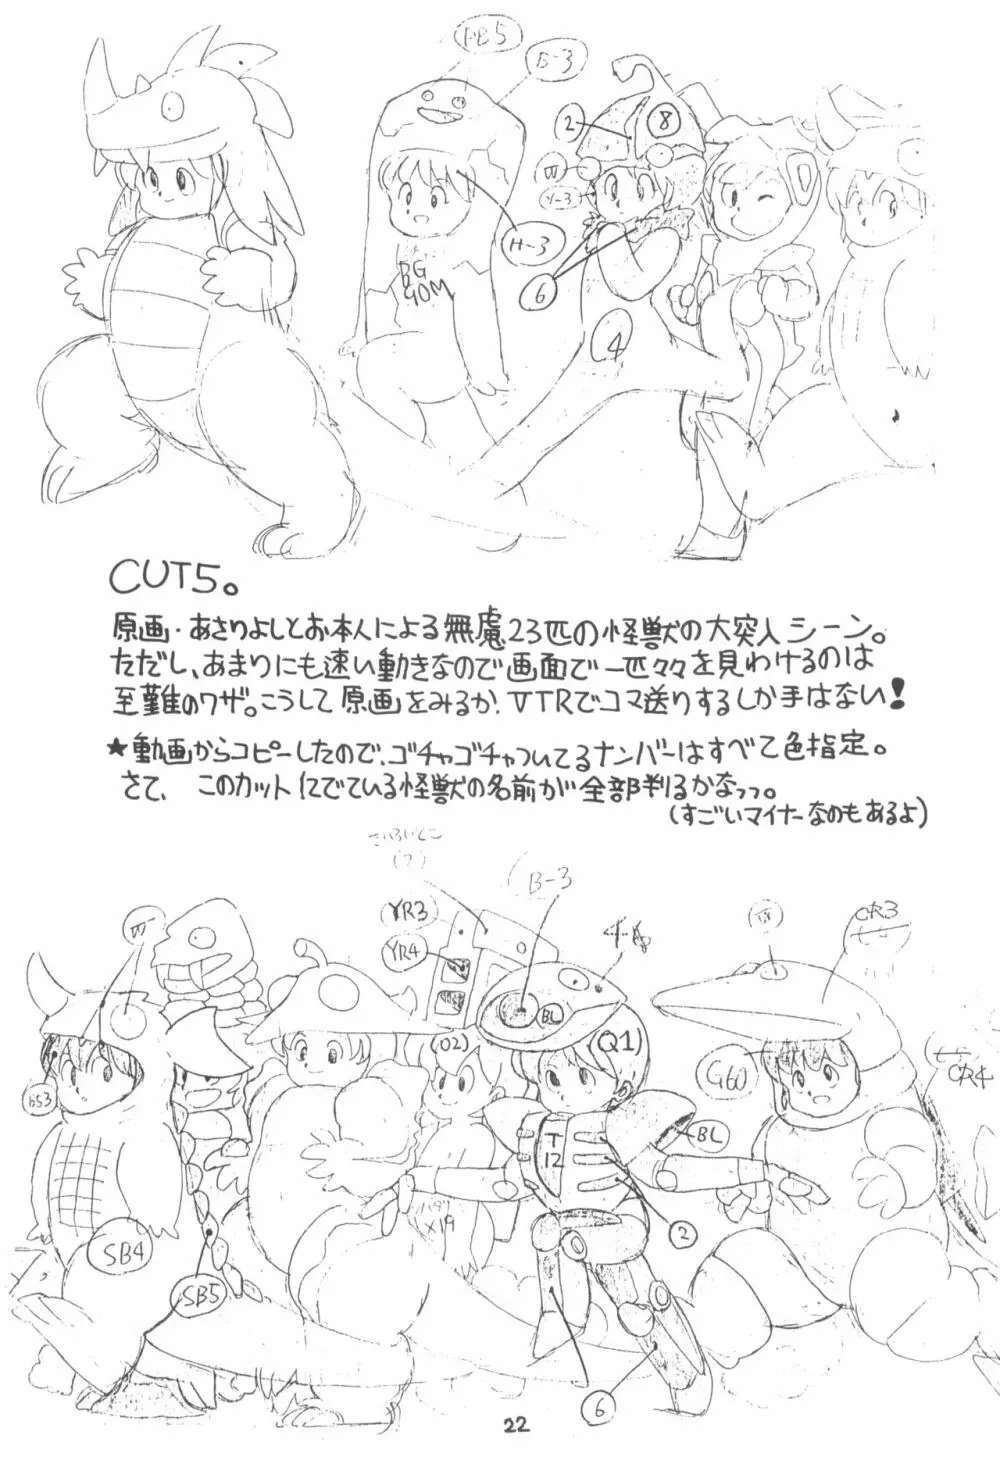 PB5
B-3
2
8
Y-3
H-3
6
BG
4
CUT5。
原画・あさりよしとお本人による無慮23匹の怪獣の大突入シーン。
ただし、あまりにも速い動きなので画面で一匹々々を見わけるのは
至難のワザ。こうして原画をみるか、VTRでコマ送りするしか手はない!
★動画からコピーしたので、ゴチャゴチャついてるナンバーはすべて色指定。
さて、このカットにでている怪獣の名前が全部判るかなっっ。
(すごいマイナーなのもあるよ)
(?)
B-3
YR3
YR4
CR3
BL
(02)
Q1)
G60
CR4
BL
T
12
X19
2
SB4
SB5
6
22